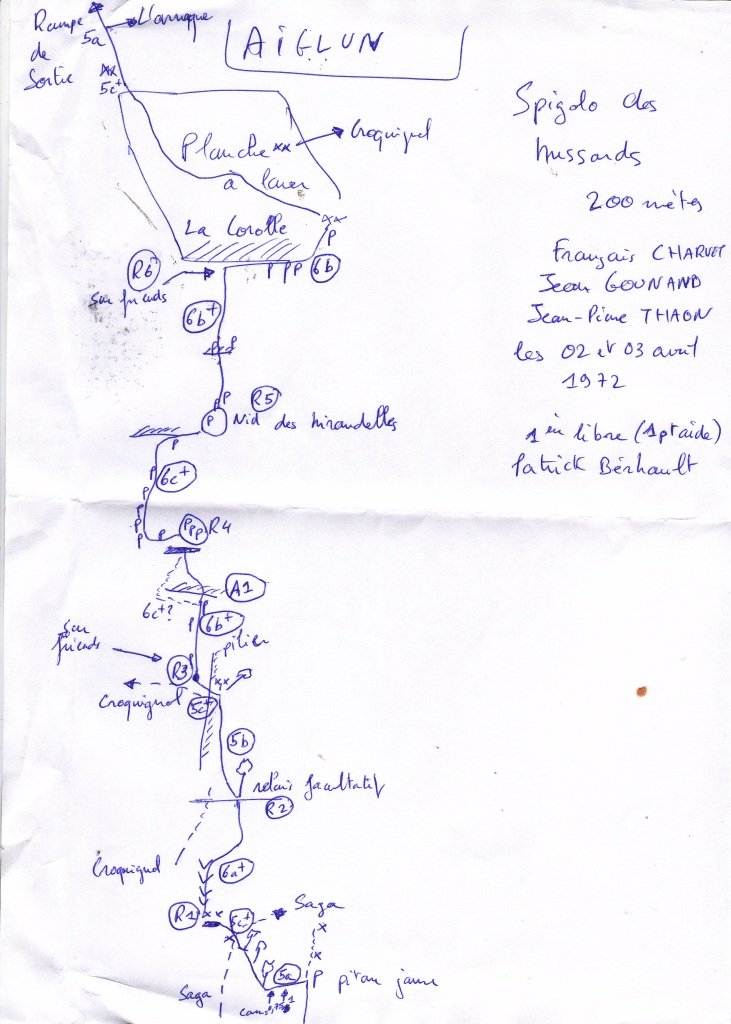 AIGLUN
Rampe
de
Sortie
5a
L'arnaque
xx
5c+
Planche xx
à laver
Croquignol
xx
P
La Corolle
R6
P
P P P
6b
sur friends
6b+
P
P
P
P
R5
P
Nid des hirondelles
P
6c+
P
P
P
P
P
P
PPP
R4
A1
6c+?
P
P
6b+
sur
friends
pilier
P
R3
xx
Croquignol
5c+
5b
relais facultatif
R2
Croquignol
6a+
R1
xx
5c+
Saga
x
x
x
5a
P
piton jaune
Saga
cams
0,75
1
Spigolo des
hussards
200 mètres
Français CHARVET
Jean GOUNAND
Jean-Pierre THAON
les 02 et 03 avril
1972
1 en libre (1pt aide)
Patrick Bérhault